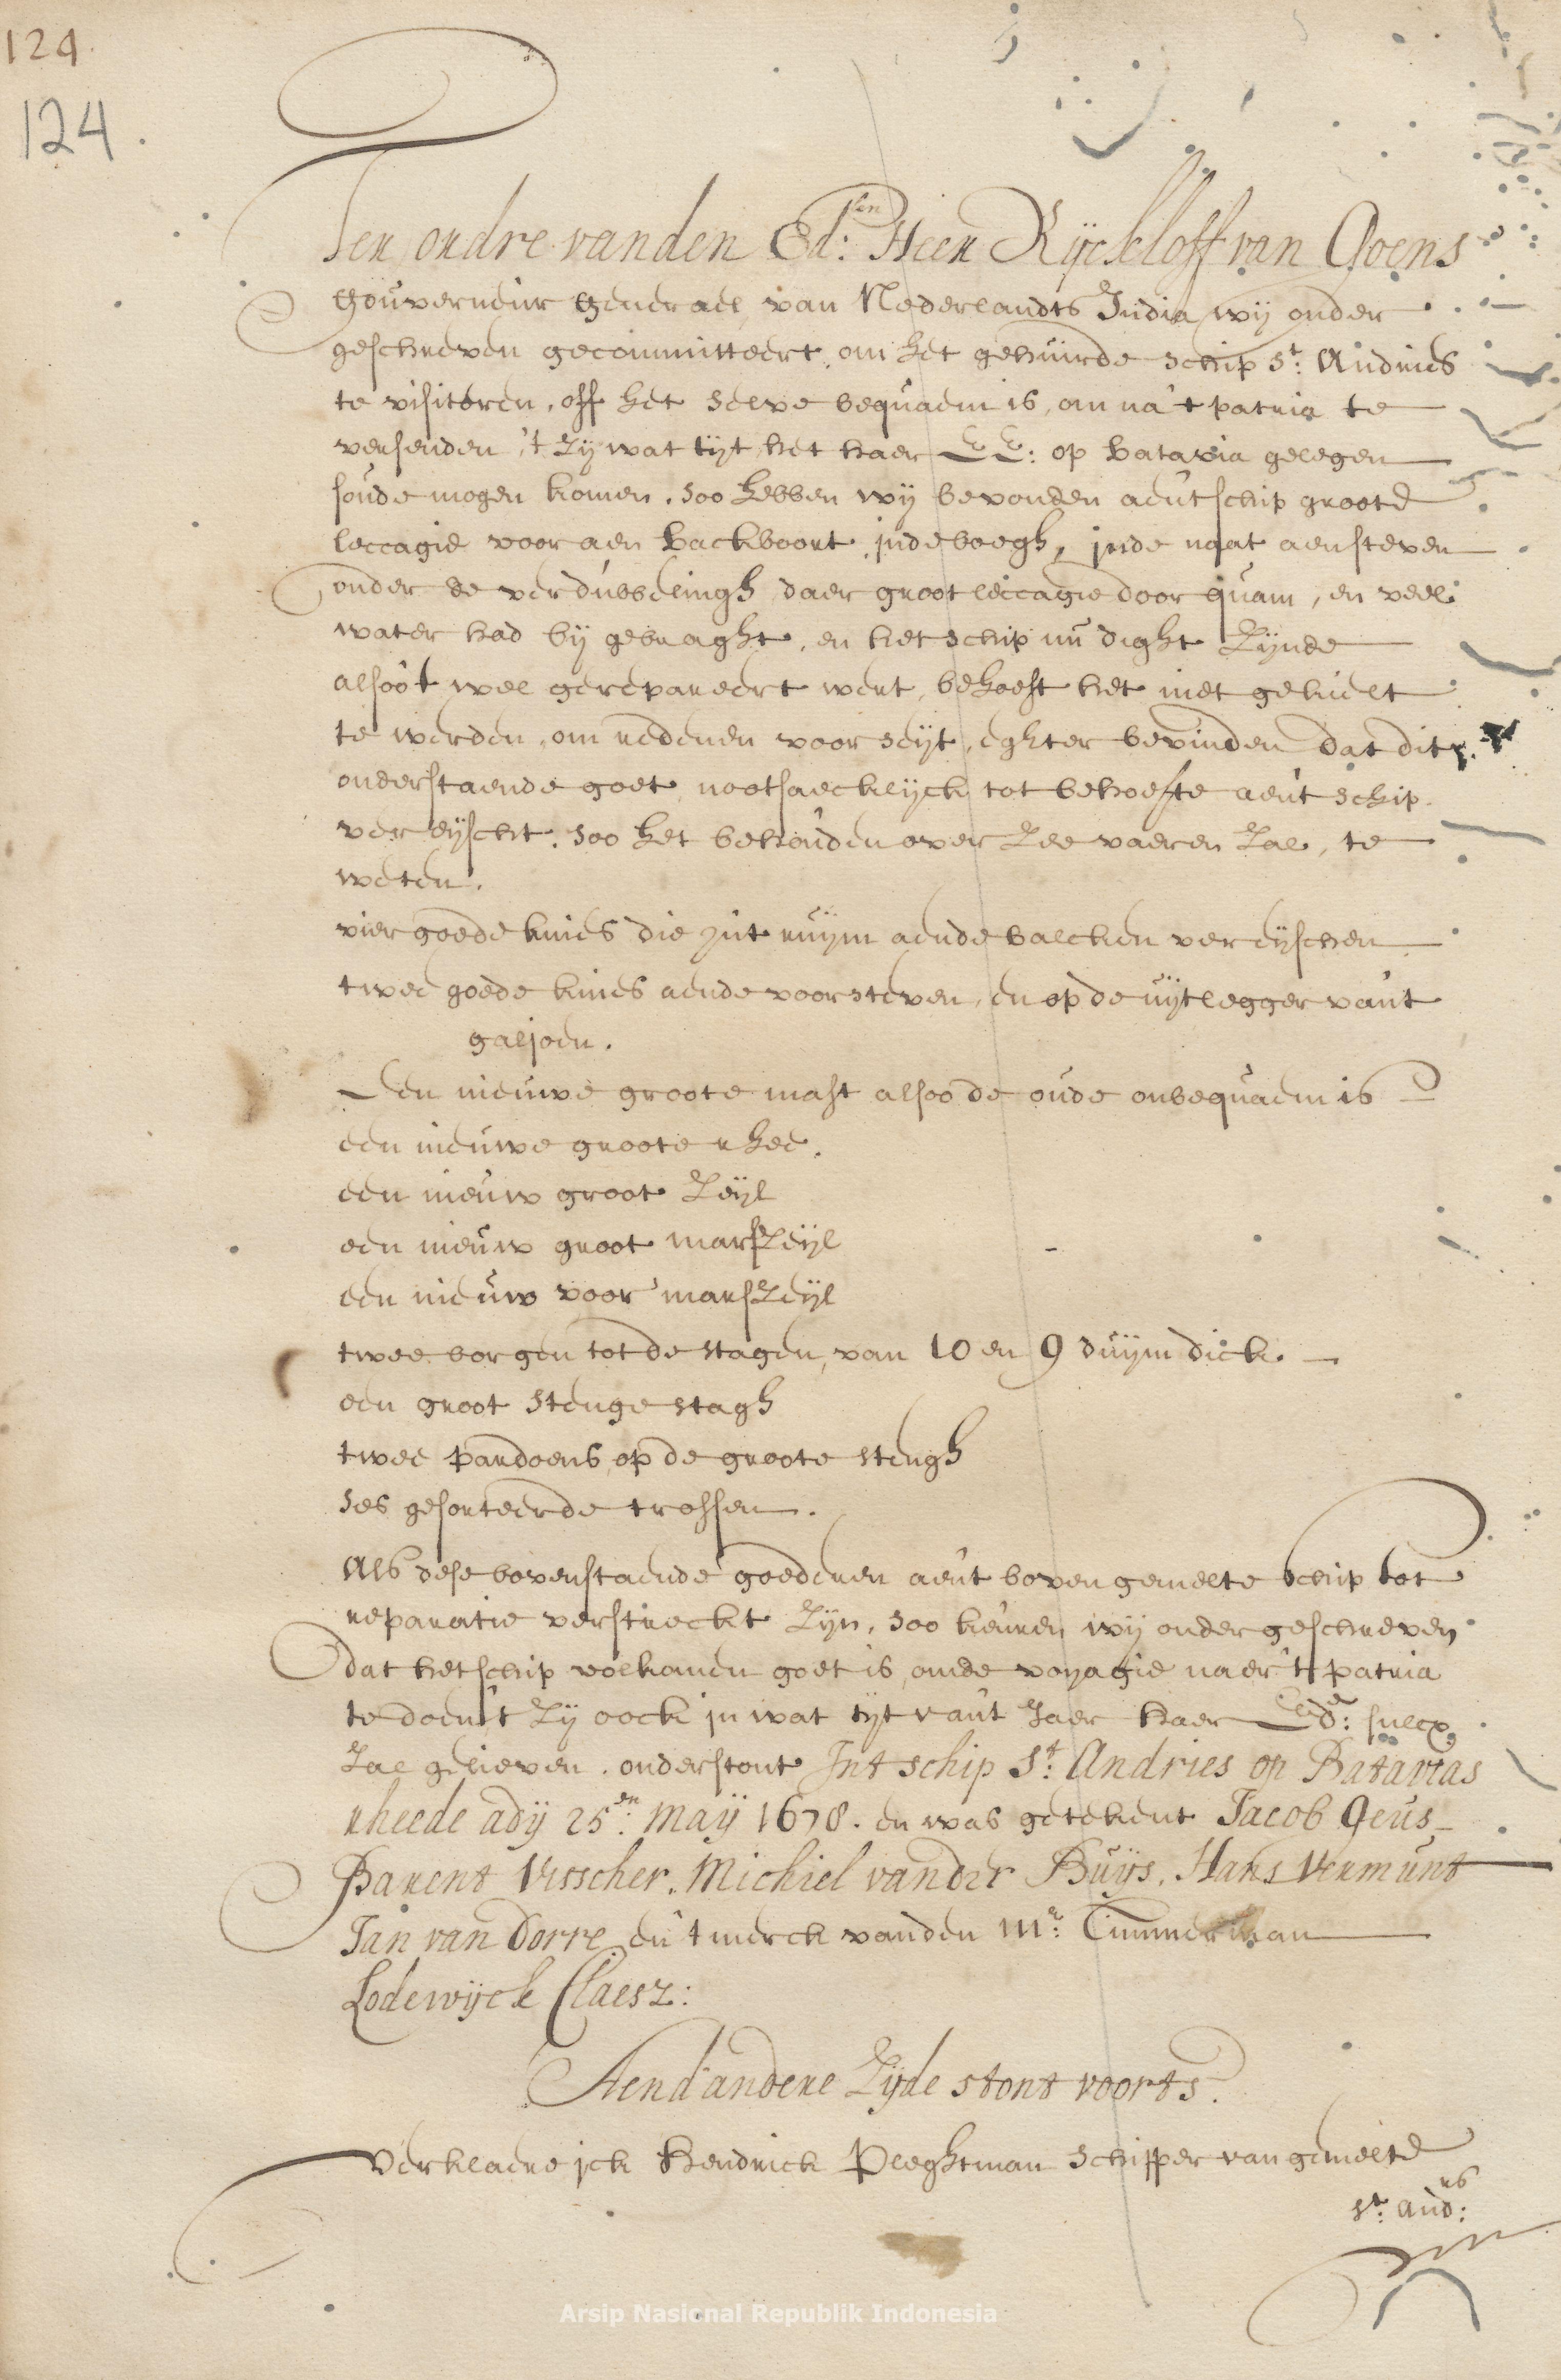 124.
124.
Ter ordre vanden Ed:len Heer Rijckloff van Goens
Gouverneur Generael van Nederlandts India wij onder
geschreven gecommitteert, om het gehuirde schip St: Andries
te visiteren, off het selve bequaem is, om na 't patria te
versenden, 't zij wat tijt het haer EE: op Batavia gelegen
soude mogen komen, soo hebben wij bevonden aen't schip groote
leccagie voor aen backboort inde boegh, inde naat aen steven
onder de verdubbelingh daer groot leccagie door quam, en veel
water had bij gebraght, en het schip nu dight zijnde
alsoo't wel gerepareert wert, behoeft het niet gekielt
te werden, om redenen voorseijt, eghter bevinden dat dit
onderstaende goet nootsaecklijck tot behoefte aen't schip
vereijscht, soo het behouden over zee vaeren zal, te
weten.
vier goede knies die in't ruijm aende balcken vereijschen
twee goede knies aende voorsteven, en op de uijtlegger van't
galjoen.
Een nieuwe groote mast alsoo de oude onbequaem is
een nieuwe groote rhee.
een nieuw groot zeijl
een nieuw groot marszeijl
een nieuw voor marszeijl
twee borgen tot de stagen, van 10 en 9 duijm dick.
een groot stenge stagh
twee pardoens op de groote stengh
ses gesorteerde trossen.
Als dese bovenstaende goederen aen't bovengemelte schip tot
reparatie verstreckt zijn, soo keuren wij ondergeschreven
dat het schip volkomen goet is, om de voyagie naer 't patria
te doen 't zij oock in wat tijt van't Jaer haer Ed:e sulcx
zal gelieven. onderstont Int schip St: Andries op Batavias
rheede adij 25en: Maij 1678. en was getekent Jacob Geus
Barent Visscher. Michiel vander Buijs. Hans Vermunt
Jan van Dorre en 't merck vanden Mr: Timmerman
Lodewijck Claesz:
Aend' andere Zijde stont voorts.
Verklaere ick Hendrick Pleghtman Schipper van gemelte
St: And:ries
Arsip Nasional Republik Indonesia